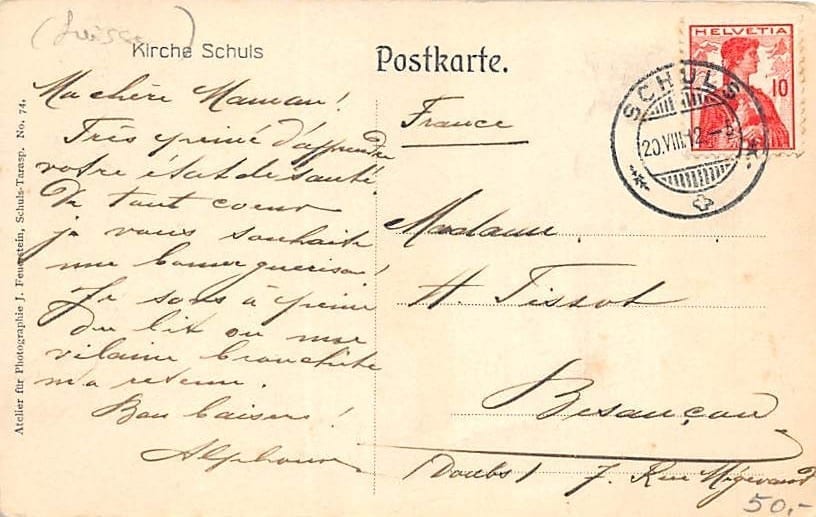 (Suisse)
Kirche Schuls
Postkarte.
HELVETIA
10
SCHULS
20.VIII.12
Ma chère Maman!
Très peiné d'apprendre
votre état de santé.
De tout coeur
je vous souhaite
une bonne guérison!
Je sors à peine
du lit ou une
vilaine bronchite
m'a retenu.
Bon baisers!
Alphonse
France
Madame
H. Tissot
Besançon
(Doubs) 7. Rue Mégevand
50.-
Atelier für Photographie J. Feuerstein, Schuls-Tarasp. No. 74.